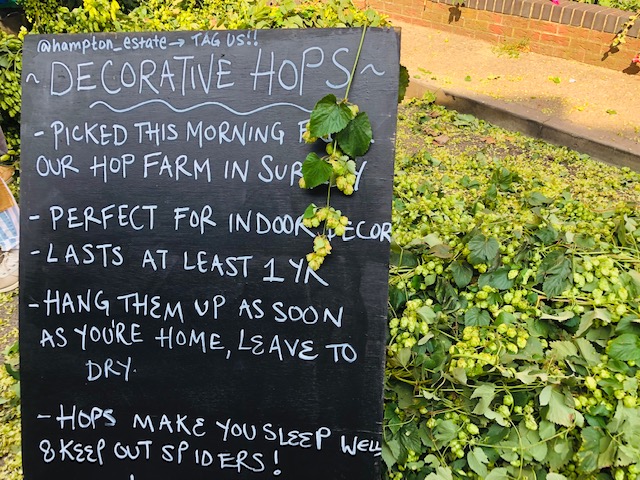 @hampton_estate → TAG US!!
~ DECORATIVE HOPS ~
- PICKED THIS MORNING
OUR HOP FARM IN SURREY
- PERFECT FOR INDOOR DECOR
- LASTS AT LEAST 1 YR
- HANG THEM UP AS SOON
AS YOU'RE HOME, LEAVE TO
DRY.
- HOPS MAKE YOU SLEEP WELL
& KEEP OUT SPIDERS!